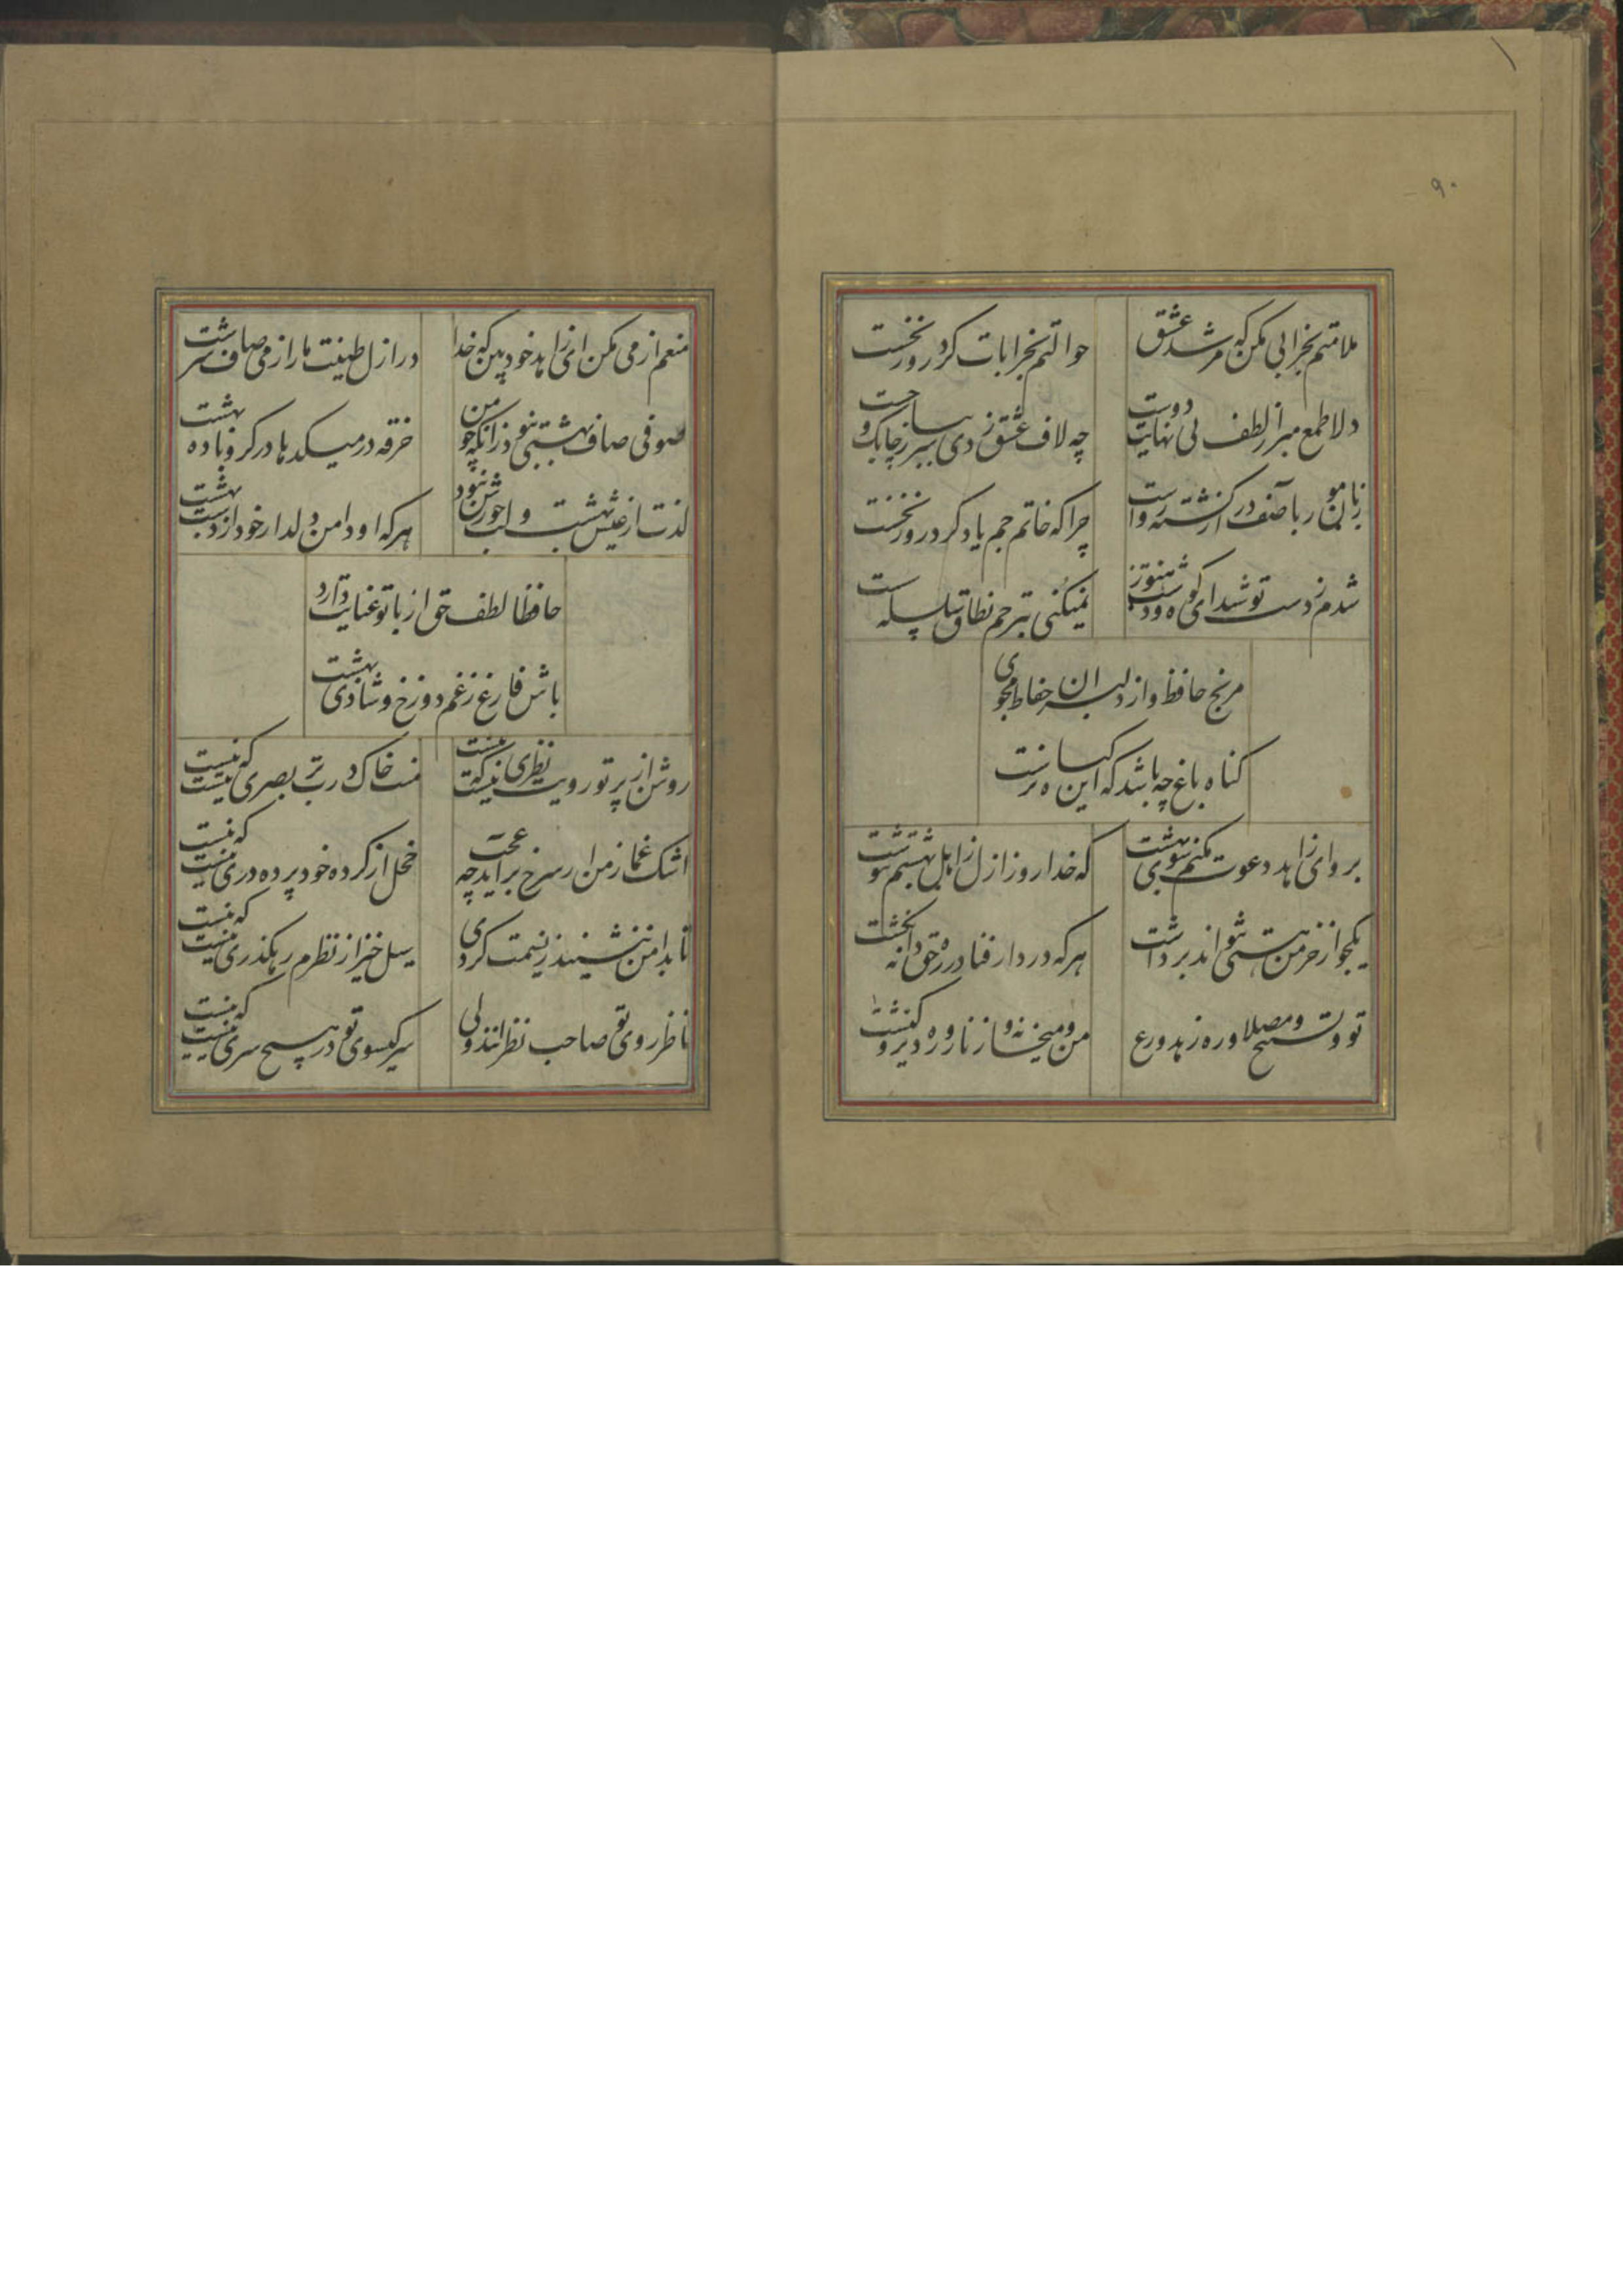 ۹۰
ملامتم بخرابی مکن که مرشد عشق
حوالتم بخرابات کرد روز نخست
دلا طمع مبر از لطف بی نهایت دوست
چو لاف عشق زدی سر بباز چابک و چست
زبان مور بآصف دراز گشت و رواست
چرا که خاتم جم یاوه کرد و روز نخست
شدم ز دست تو شیدای کوه و دشت هنوز
نمیکنی بترحم نطاق سلسله سست
مرنج حافظ و از دلبران حفاظ مجوی
گناه باغ چه باشد که این گیاه نرست
برو ای زاهد و دعوت مکنم سوی بهشت
که خدا روز ازل ز اهل بهشتم نسرشت
یکجو از خرمن هستی نتواند برداشت
هر که در دار فنا در ره حق دانه نکشت
تو و تسبیح و مصلا و ره زهد و ورع
من و میخانه و زنار و ره دیر و کنشت
منعم از می مکن ای زاهد خودبین که خدا
در ازل طینت ما را ز می صاف سرشت
صوفی صاف بهشتی نبود زانکه چو من
خرقه در میکدها در گرو باده بهشت
لذت از عیش بهشت و لب حورش نبود
هر که او دامن دلدار خود از دست بهشت
حافظا لطف حق ار با تو عنایت دارد
باش فارغ ز غم دوزخ و شادی بهشت
روشن از پرتو رویت نظری نیست که نیست
منت خاک درت بر بصری نیست که نیست
اشک غماز من ار سرخ برآید چه عجب
خجل از کرده خود پرده دری نیست که نیست
تا بدامن ننشیند ز نسیمت گردی
سیل خیز از نظرم رهگذری نیست که نیست
ناظر روی تو صاحب نظرانند ولی
سر گیسوی تو در هیچ سری نیست که نیست